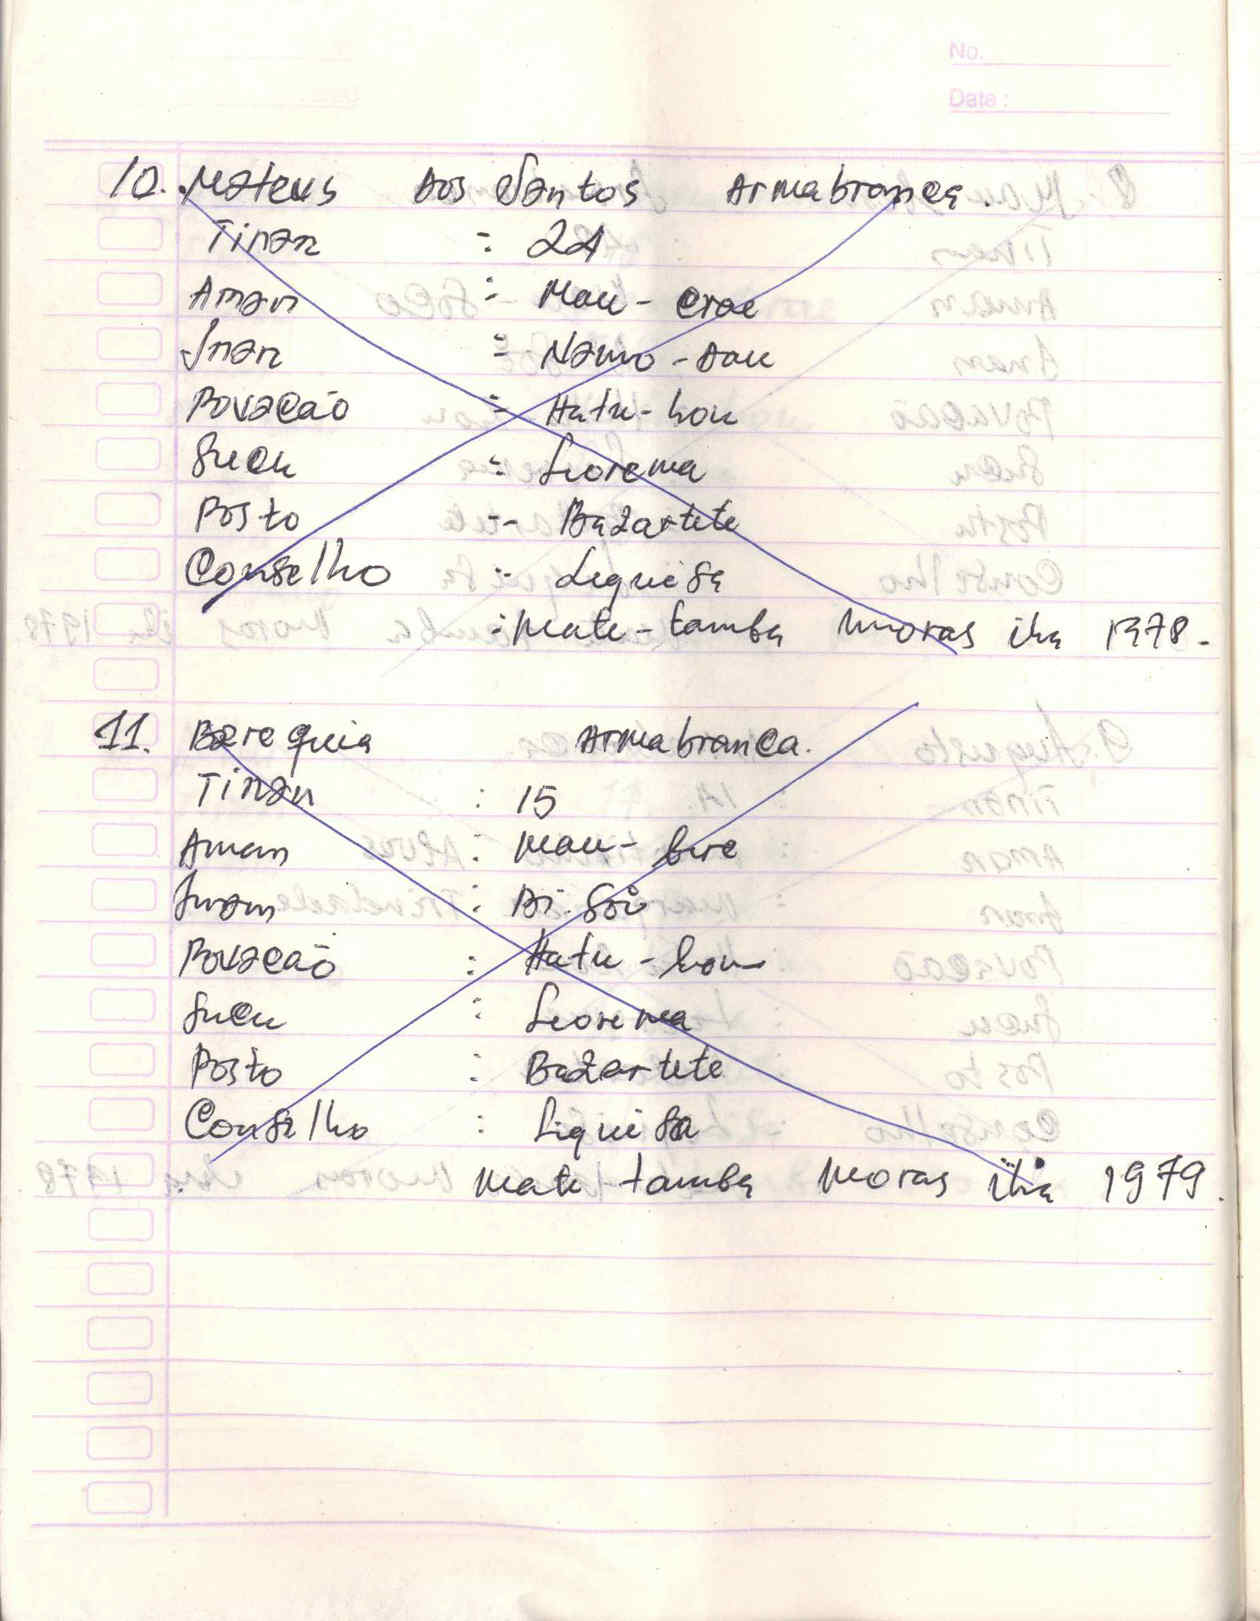 No.
Date :
10. Mateus Dos Santos Armabranca.
Tinan : 24
Aman : Mau - erae
Inan : Namo - Dau
Povacão : Hatu - hou
Sucu : Leorema
Posto : Bazartete
Conselho : Liquisa
: Mate - tamba Moras iha 1978.
11. Berequia Armabranca.
Tinan : 15
Aman : Mau - bere
Inan : Bi - Soi
Povacão : Hatu - hou
Sucu : Leorema
Posto : Bazartete
Conselho : Liquisa
Mate tamba Moras iha 1979.